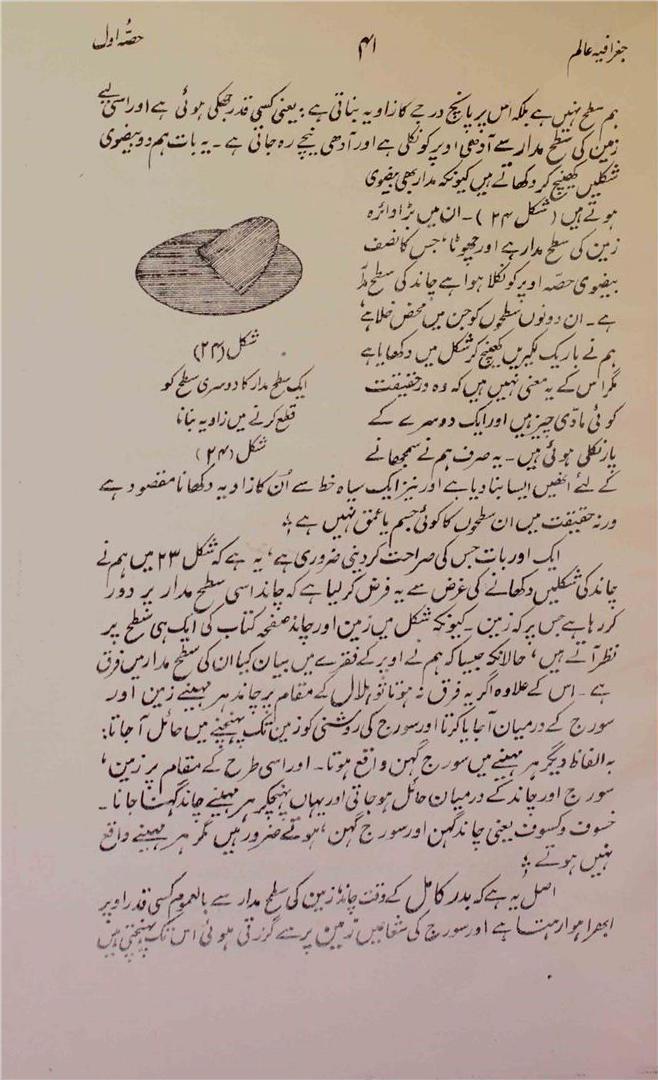 جغرافیہ عالم
۴۱
حصّہ اول
ہم سطح نہیں ہے بلکہ اس پر پانچ درجے کا زاویہ بناتی ہے؛ یعنی کسی قدر جھکی ہوئی ہے اور اسی لیے
زمین کی سطح مدار سے آدھی اوپر کو نکلی ہے اور آدھی نیچے رہ جاتی ہے ۔ یہ بات ہم دو بیضوی
شکلیں کھینچ کر دکھاتے ہیں کیونکہ مدار بھی بیضوی
ہوتے ہیں (شکل ۲۴) ۔ ان میں بڑا دائرہ
زمین کی سطح مدار ہے اور چھوٹا، جس کا نصف
بیضوی حصّہ اوپر کو نکلا ہوا ہے چاند کی سطح مدّ
ہے ۔ ان دونوں سطحوں کو جن میں محض خلا ہے
ہم نے باریک لکیریں کھینچ کر شکل میں دکھایا ہے
مگر اس کے یہ معنی نہیں ہیں کہ وہ در حقیقت
کوئی مادّی چیز ہیں اور ایک دوسرے کے
پار نکلی ہوئی ہیں ۔ یہ صرف ہم نے سمجھانے
شکل (۲۴)
ایک سطح مدار کا دوسری سطح کو
قطع کرنے میں زاویہ بنانا
شکل (۲۴)
کے لئے انھیں ایسا بنا دیا ہے اور نیز ایک سیاہ خط سے اُن کا زاویہ دکھانا مقصود ہے
ورنہ حقیقت میں ان سطحوں کا کوئی جسم یا عمق نہیں ہے ؛
ایک اور بات جس کی صراحت کر دینی ضروری ہے، یہ ہے کہ شکل ۲۳ میں ہم نے
چاند کی شکلیں دکھانے کی غرض سے یہ فرض کر لیا ہے کہ چاند اسی سطح مدار پر دور
کر رہا ہے جس پر کہ زمین ۔ کیونکہ شکل میں زمین اور چاند صفحہ کتاب کی ایک ہی سطح پر
نظر آتے ہیں، حالانکہ جیسا کہ ہم نے اوپر کے فقرے میں بیان کیا ان کی سطح مدار میں فرق
ہے ۔ اس کے علاوہ اگر یہ فرق نہ ہوتا تو ہلال کے مقام پر چاند ہر مہینے زمین اور
سورج کے درمیان آ جایا کرتا اور سورج کی روشنی کو زمین تک پہنچنے میں حائل آ جاتا:
بہ الفاظ دیگر ہر مہینے میں سورج گہن واقع ہوتا۔ اور اسی طرح کے مقام پر زمین،
سورج اور چاند کے درمیان حائل ہو جاتی اور یہاں پہنچکر ہر مہینے چاند گہنا جاتا ۔
خسوف و کسوف یعنی چاند گہن اور سورج گہن، ہوتے ضرور ہیں مگر ہر مہینے واقع
نہیں ہوتے ؛
اصل یہ ہے کہ بدر کامل کے وقت چاند زمین کی سطح مدار سے بالعموم کسی قدر اوپر
ابھرا ہوا رہتا ہے اور سورج کی شعاعیں زمین پر سے گزرتی ہوئی اس تک پہنچتی ہیں